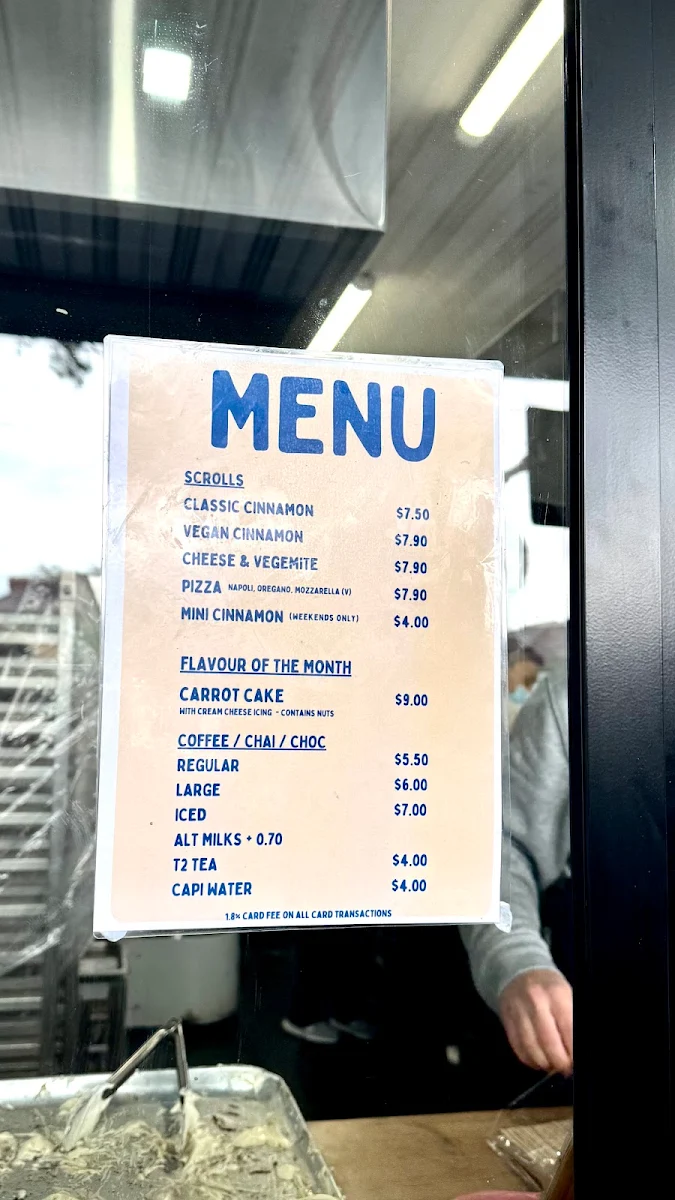 MENU
SCROLLS
CLASSIC CINNAMON $7.50
VEGAN CINNAMON $7.90
CHEESE & VEGEMITE $7.90
PIZZA NAPOLI, OREGANO, MOZZARELLA (V) $7.90
MINI CINNAMON (WEEKENDS ONLY) $4.00
FLAVOUR OF THE MONTH
CARROT CAKE $9.00
WITH CREAM CHEESE ICING - CONTAINS NUTS
COFFEE / CHAI / CHOC
REGULAR $5.50
LARGE $6.00
ICED $7.00
ALT MILKS + 0.70
T2 TEA $4.00
CAPI WATER $4.00
1.8% CARD FEE ON ALL CARD TRANSACTIONS